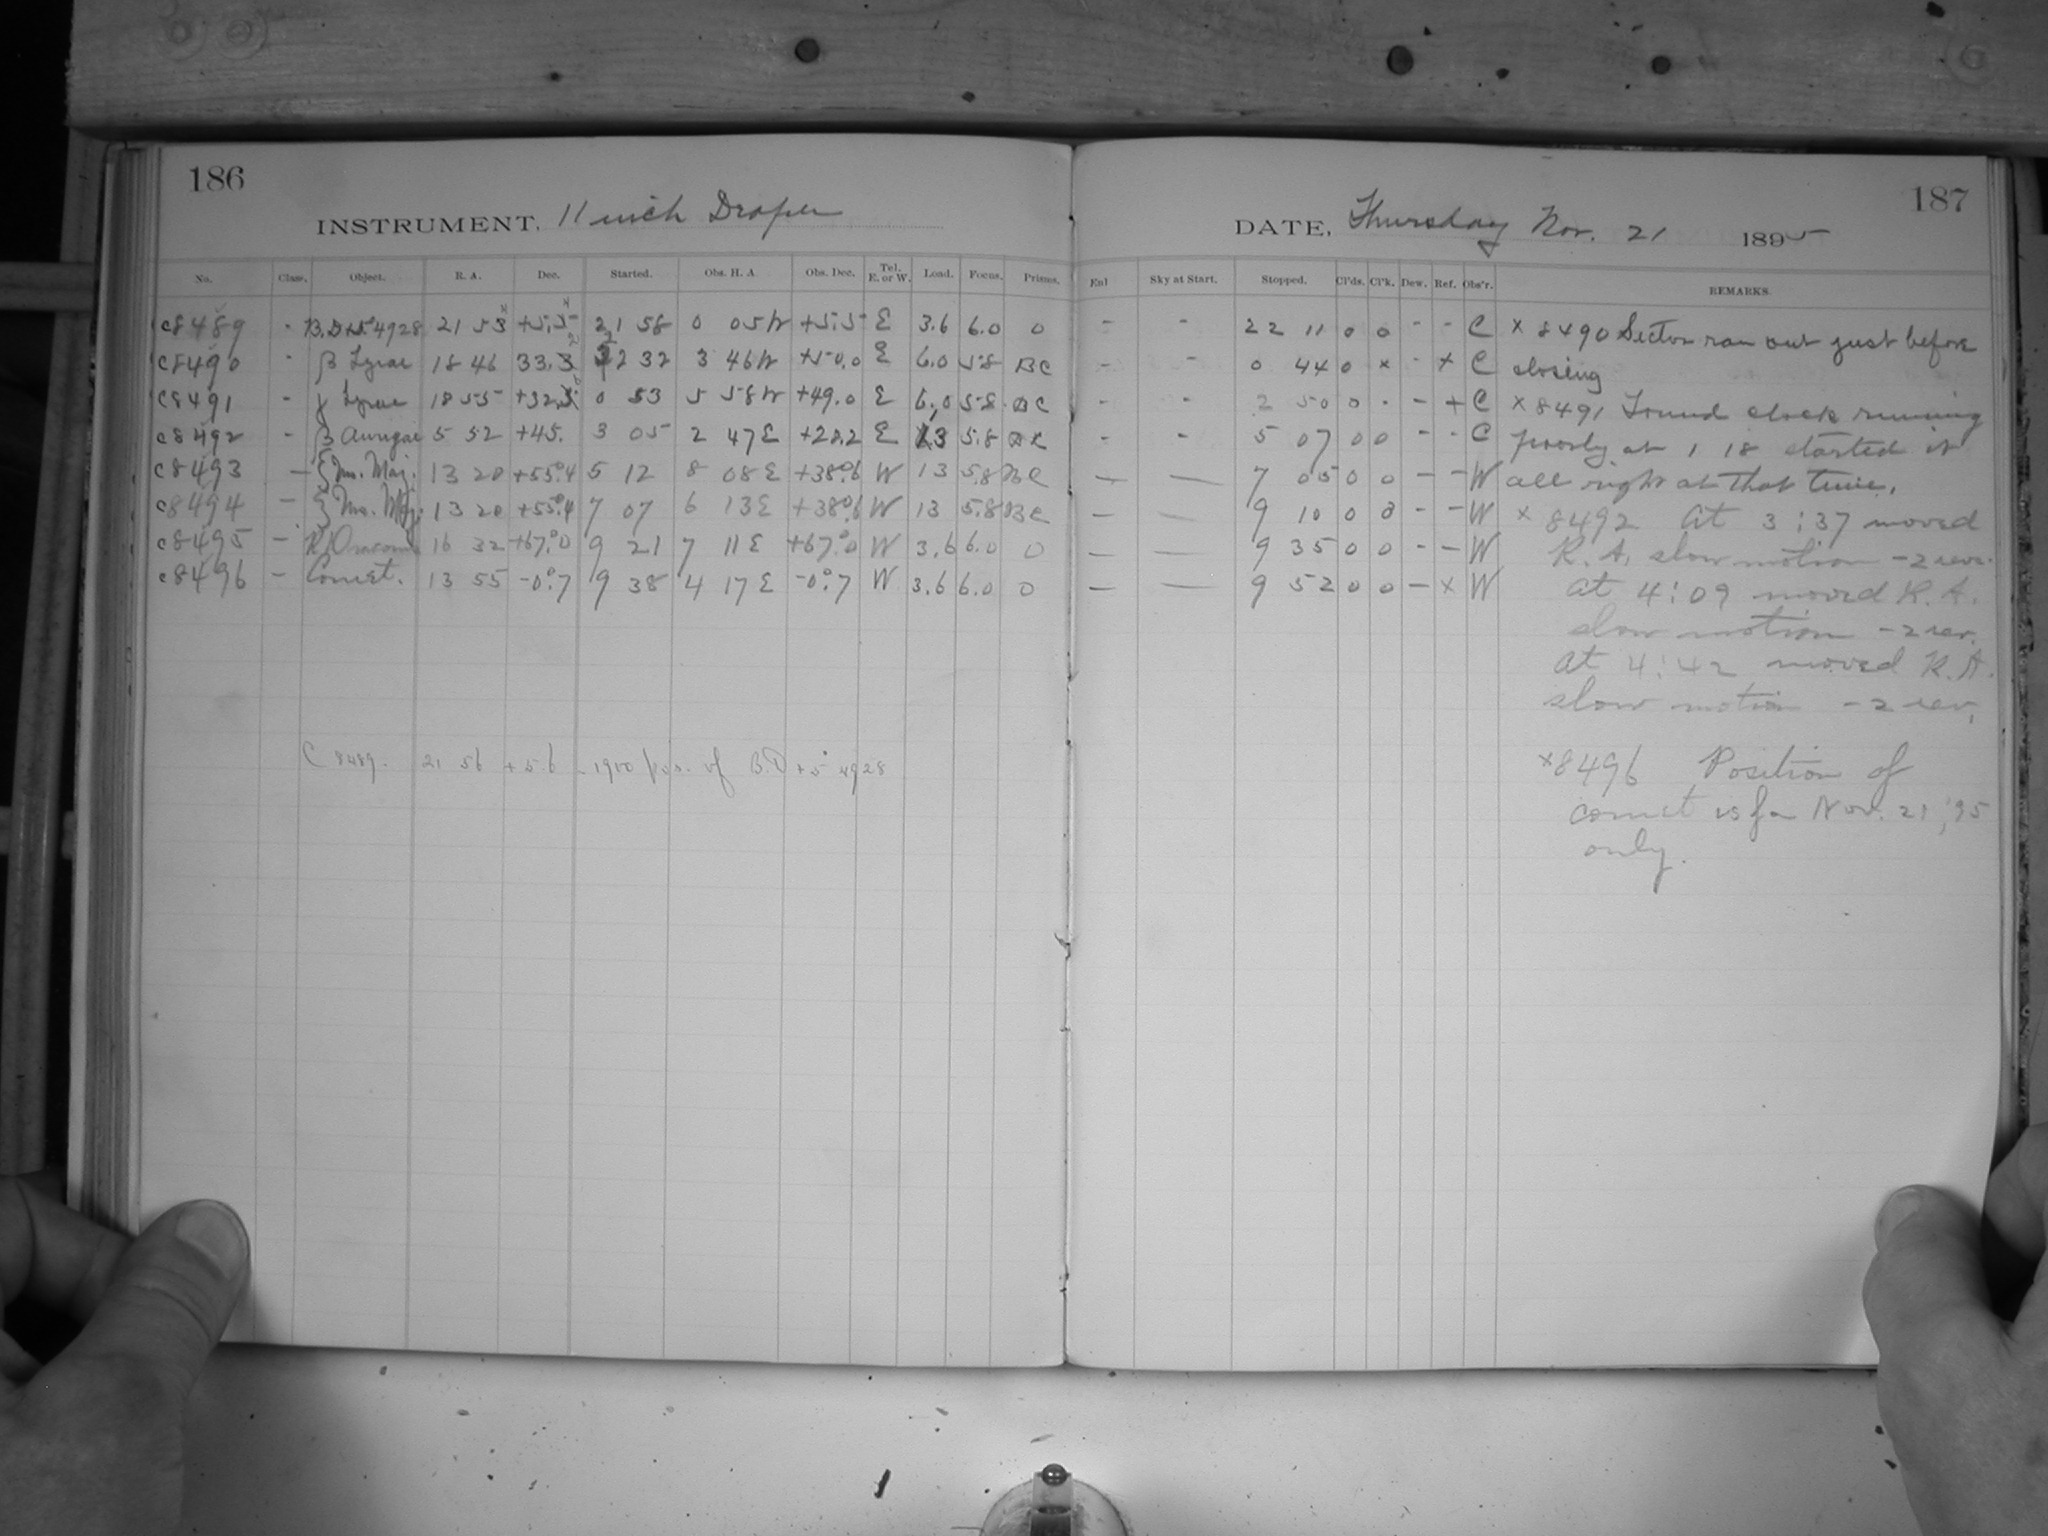 186
INSTRUMENT, 11 inch Draper
No. Class. Object. R. A. Dec. Started. Obs. H. A. Obs. Dec. Tel. E. or W. Load. Focus. Prisms.
c8489 - B.D+5°4928 21 53 +5.5 21 58 0 05W +5.5 E 3.6 6.0 0
c8490 - β Lyrae 18 46 33.3 22 32 3 46W +50.0 E 6.0 5.8 BC
c8491 - γ Lyrae 18 55 +32. 0 53 5 58W +49.0 E 6.0 5.8 BC
c8492 - β Aurigae 5 52 +45. 3 05 2 47E +28.2 E 13 5.8 BC
c8493 - ζ Urs. Maj. 13 20 +55°.4 5 12 8 08E +38°.6 W 13 5.8 BC
c8494 - ζ Urs. Maj. 13 20 +55°.4 7 07 6 13E +38°.6 W 13 5.8 BC
c8495 - R Draconis 16 32 +67°.0 9 21 7 11E +67°.0 W 3.6 6.0 0
c8496 - Comet. 13 55 -0°.7 9 38 4 17E -0°.7 W 3.6 6.0 0
C 8489. 21 56 +5.6 - 1900 pos. of B.D +5° 4928
187
DATE, Thursday Nov. 21 1895
Enl Sky at Start. Stopped. Cl'ds. Cl'k. Dew. Ref. Obs'r. REMARKS.
- - 22 11 0 0 - - C × 8490 Sector ran out just before
- - 0 44 0 × - × C closing
- - 2 50 0 - - + C × 8491 Found clock running
- - 5 07 0 0 - - C poorly at 1 18 started it
- - 7 05 0 0 - - W all right at that time.
- - 9 10 0 0 - - W × 8492 At 3:37 moved
- - 9 35 0 0 - - W R. A. slow motion -2 rev.
- - 9 52 0 0 - × W At 4:09 moved R. A.
slow motion -2 rev.
At 4:42 moved R. A.
slow motion -2 rev.
×8496 Position of
comet is for Nov. 21, '95
only.